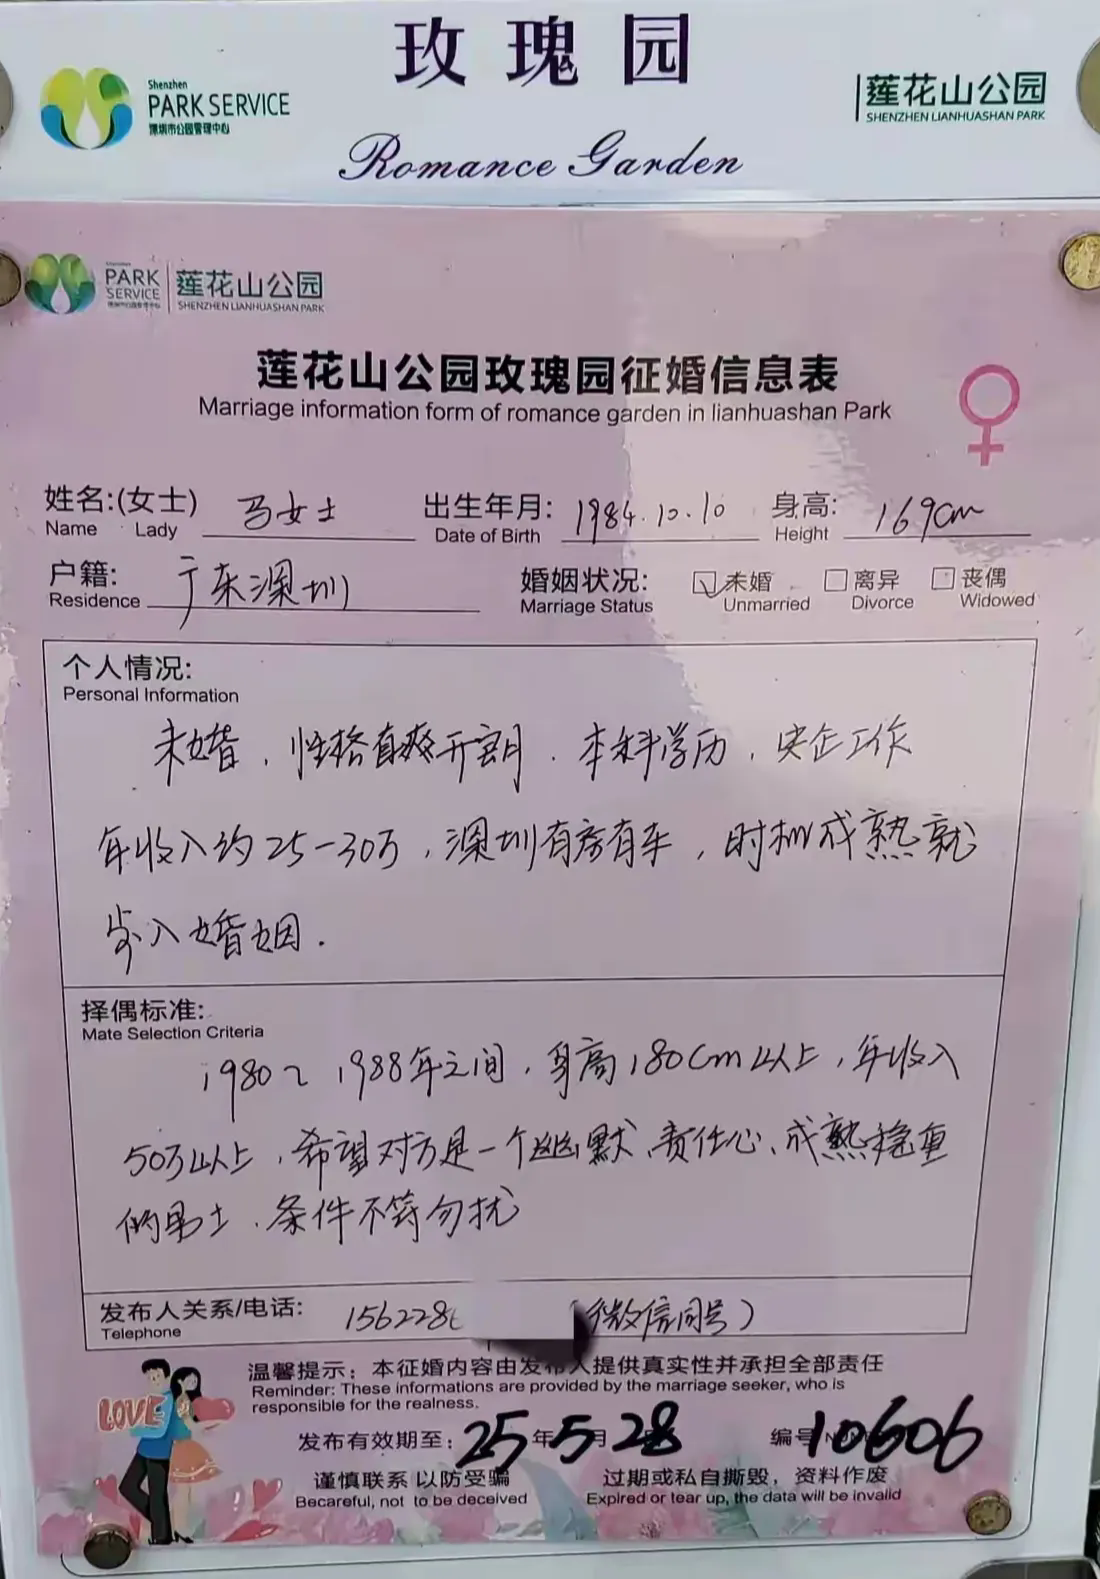 玫瑰园
Shenzhen
PARK SERVICE
深圳市公园管理中心
莲花山公园
SHENZHEN LIANHUASHAN PARK
Romance Garden
PARK
SERVICE
莲花山公园
SHENZHEN LIANHUASHAN PARK
莲花山公园玫瑰园征婚信息表
Marriage information form of romance garden in lianhuashan Park
姓名:(女士) 马女士 出生年月: 1984.10.10 身高: 169cm
Name Lady Date of Birth Height
户籍: 广东深圳 婚姻状况: ☑未婚 □离异 □丧偶
Residence Marriage Status Unmarried Divorce Widowed
个人情况:
Personal Information
未婚，性格直爽开朗．本科学历，央企工作
年收入约25-30万，深圳有房有车，时机成熟就
步入婚姻．
择偶标准:
Mate Selection Criteria
1980~1988年之间，身高180cm以上，年收入
50万以上，希望对方是一个幽默、责任心、成熟稳重
的男士．条件不符勿扰
发布人关系/电话: 156228 (微信同号)
Telephone
温馨提示：本征婚内容由发布人提供真实性并承担全部责任
Reminder: These informations are provided by the marriage seeker, who is
responsible for the realness.
LOVE
发布有效期至: 25年5月28 编号 10606
谨慎联系 以防受骗 过期或私自撕毁，资料作废
Becareful, not to be deceived Expired or tear up, the data will be invalid